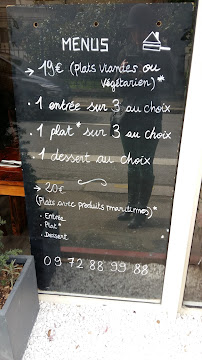 MENUS
→ 19€ (Plats viandes ou
végétarien)*
• 1 entrée sur 3 au choix
• 1 plat* sur 3 au choix
• 1 dessert au choix
→ 20€
(Plats avec produits maritimes)*
• Entrée
• Plat*
• Dessert
09 72 88 99 88